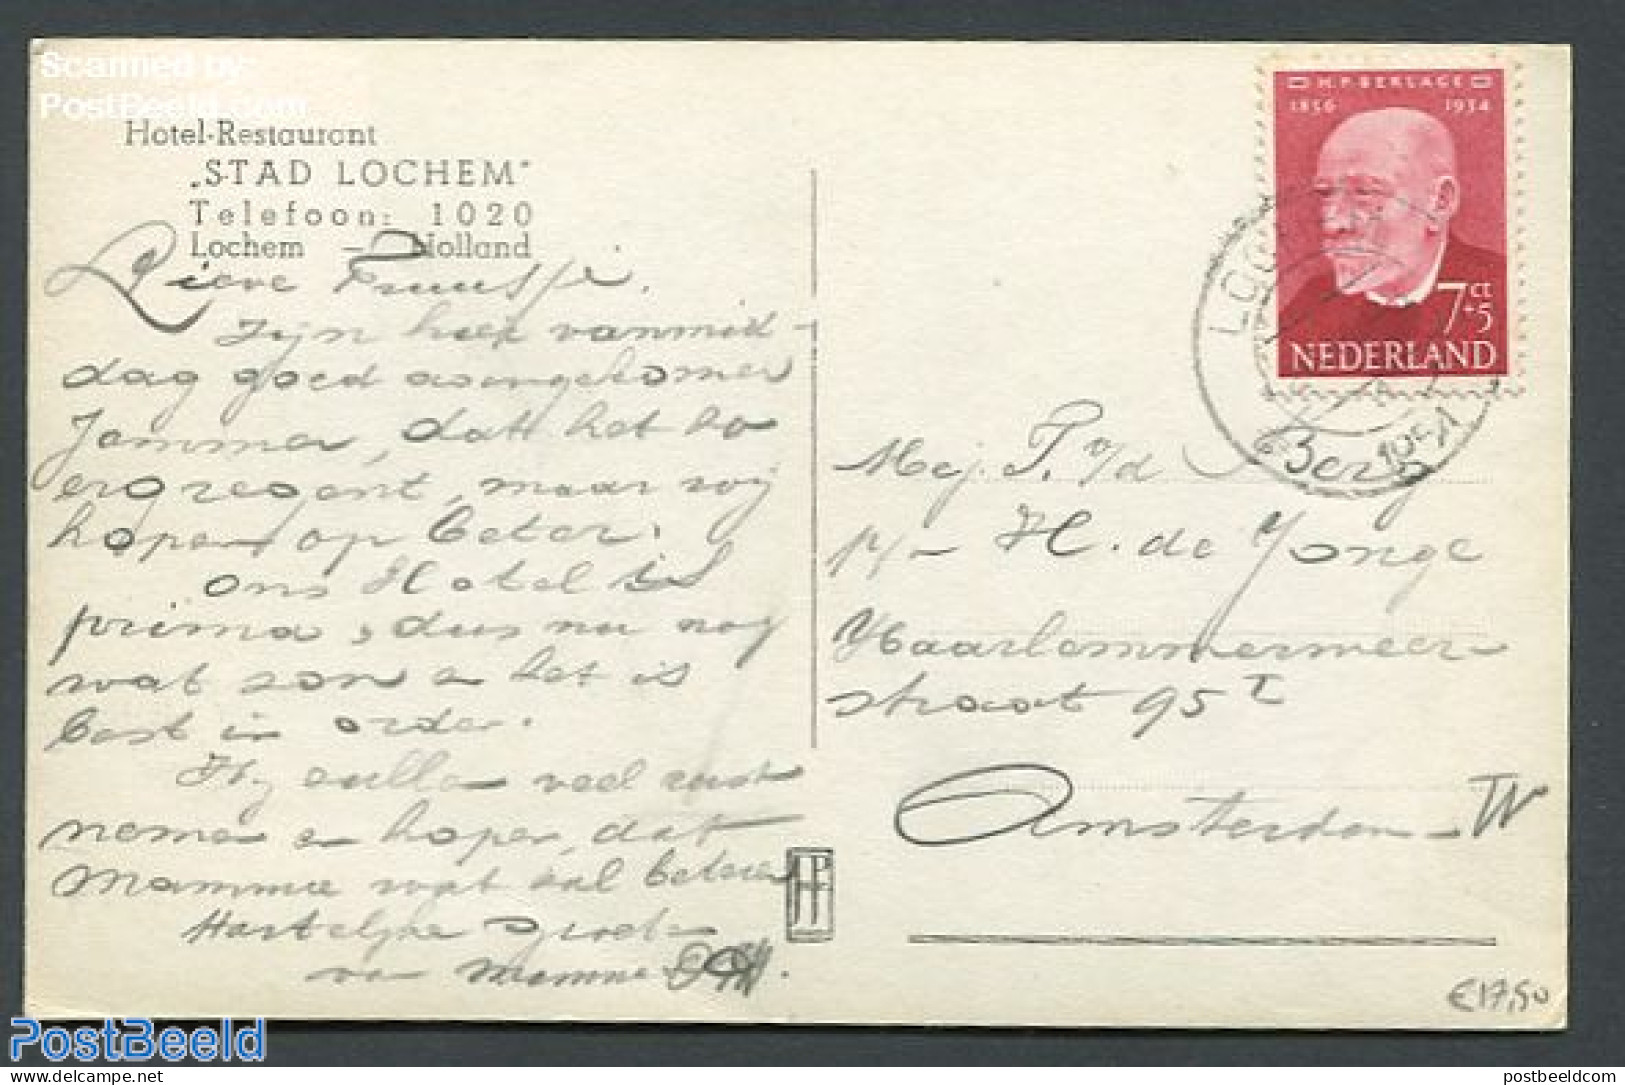 Scanned by:
PostBeeld.com
Hotel-Restaurant
„STAD LOCHEM"
Telefoon: 1020
Lochem — Holland
Lieve Truusje.
Zijn hier vanmid-
dag goed aangekomen
Jammer, dat het zo
erg regent, maar wij
hopen op beter.
Ons Hotel is
prima, dus nu nog
wat zon en het is
best in orde.
Hy zullen veel rust
nemen en hopen dat
Mammie wat zal beteren
Hartelijke groeten
van Mamma
HP
H.P. BERLAGE
1856 1934
7 ct
+5
NEDERLAND
LOCHEM
1954
Mej. T. v/d Berg
p/a H. de Jonge
Haarlemmermeer-
straat 95 I
Amsterdam-W
€17,50
PostBeeld
postbeeldcom